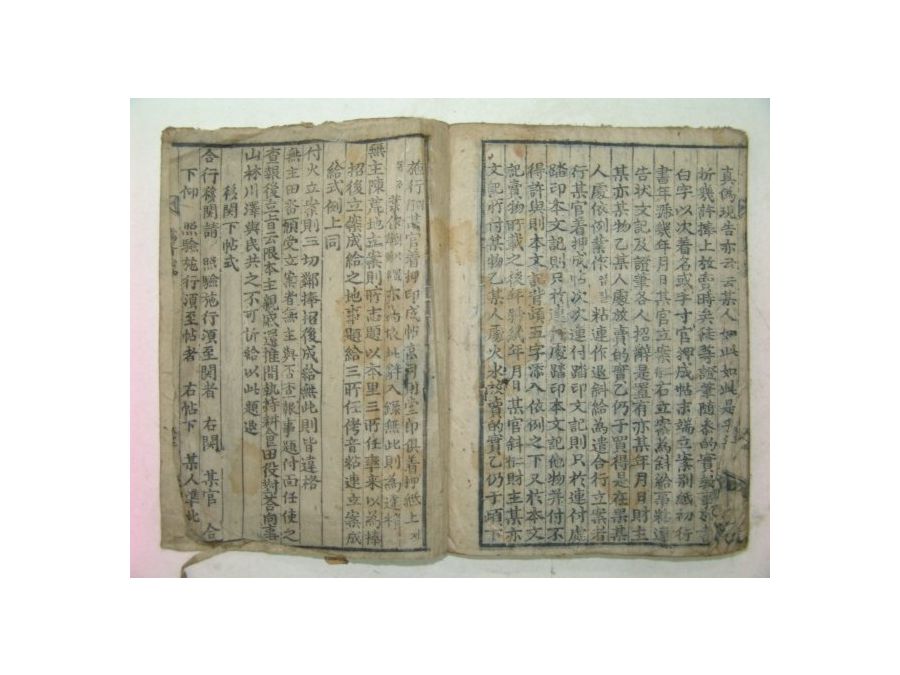 真僞現告亦云云某人如此如此是
折幾許捧上放賣時矣徒等證筆隨參的實
白字以次着名或字寸官押成帖末端立案別紙初行
書年號幾年月日某官立案 右立案爲斜給事
告狀文記及證筆各人招辭是置有亦某年月日財主
某亦某物乙某人處放賣的實乙仍于買得是在果某
人處依例粘連作退斜給爲遣合行立案者
行某官着押成帖以次連付踏印文記則只於連付處
踏印本文記則只於連 處踏印本文記他物并付不
得許與則本文記背頉五字添入依例之下又於本文
記賣物所載之後年號幾年月日某官斜 財主某亦
文記所付某物乙某人處火水放賣的實乙仍于頉下
施行 某官着押印成帖 俱着押紙上
入錄無此則爲違格
無主陳荒地立案則所志題以本里三所任率來以爲捧
招後立案成給之地事題給三所任侤音粘連立案成
給式例上同
付火立案則三切鄰捧招後成給無此則皆違格
無主田畓頉受立案者無主與否查報事題付面任使之
查報後立旨云限本主親戚還推間執持耕食田役對答向事
山林川澤與民共之不可許給以此題退
移關下帖式
合行移關請 照驗施行須至關者 右關 某官 合
下仰 照驗施行須至帖者 右帖下 某人準此